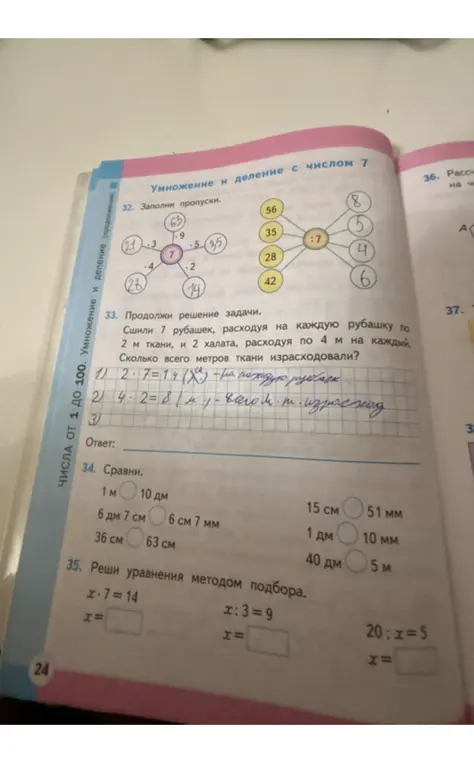 Умножение и деление с числом 7
32. Заполни пропуски.
63
21 ·3 ·9 ·5 35
7
28 ·4 ·2 14
56 8
35 :7 5
28 4
42 6
33. Продолжи решение задачи.
Сшили 7 рубашек, расходуя на каждую рубашку по
2 м ткани, и 2 халата, расходуя по 4 м на каждый.
Сколько всего метров ткани израсходовали?
1) 2 · 7 = 14 (м) -
2) 4 · 2 = 8 (м) -
3)
Ответ:
34. Сравни.
1 м 10 дм 15 см 51 мм
6 дм 7 см 6 см 7 мм 1 дм 10 мм
36 см 63 см 40 дм 5 м
35. Реши уравнения методом подбора.
x · 7 = 14 x : 3 = 9 20 : x = 5
x = x = x =
24
ЧИСЛА ОТ 1 ДО 100. Умножение и деление (продолжение)
36. Расс
на ч
А
37.
3